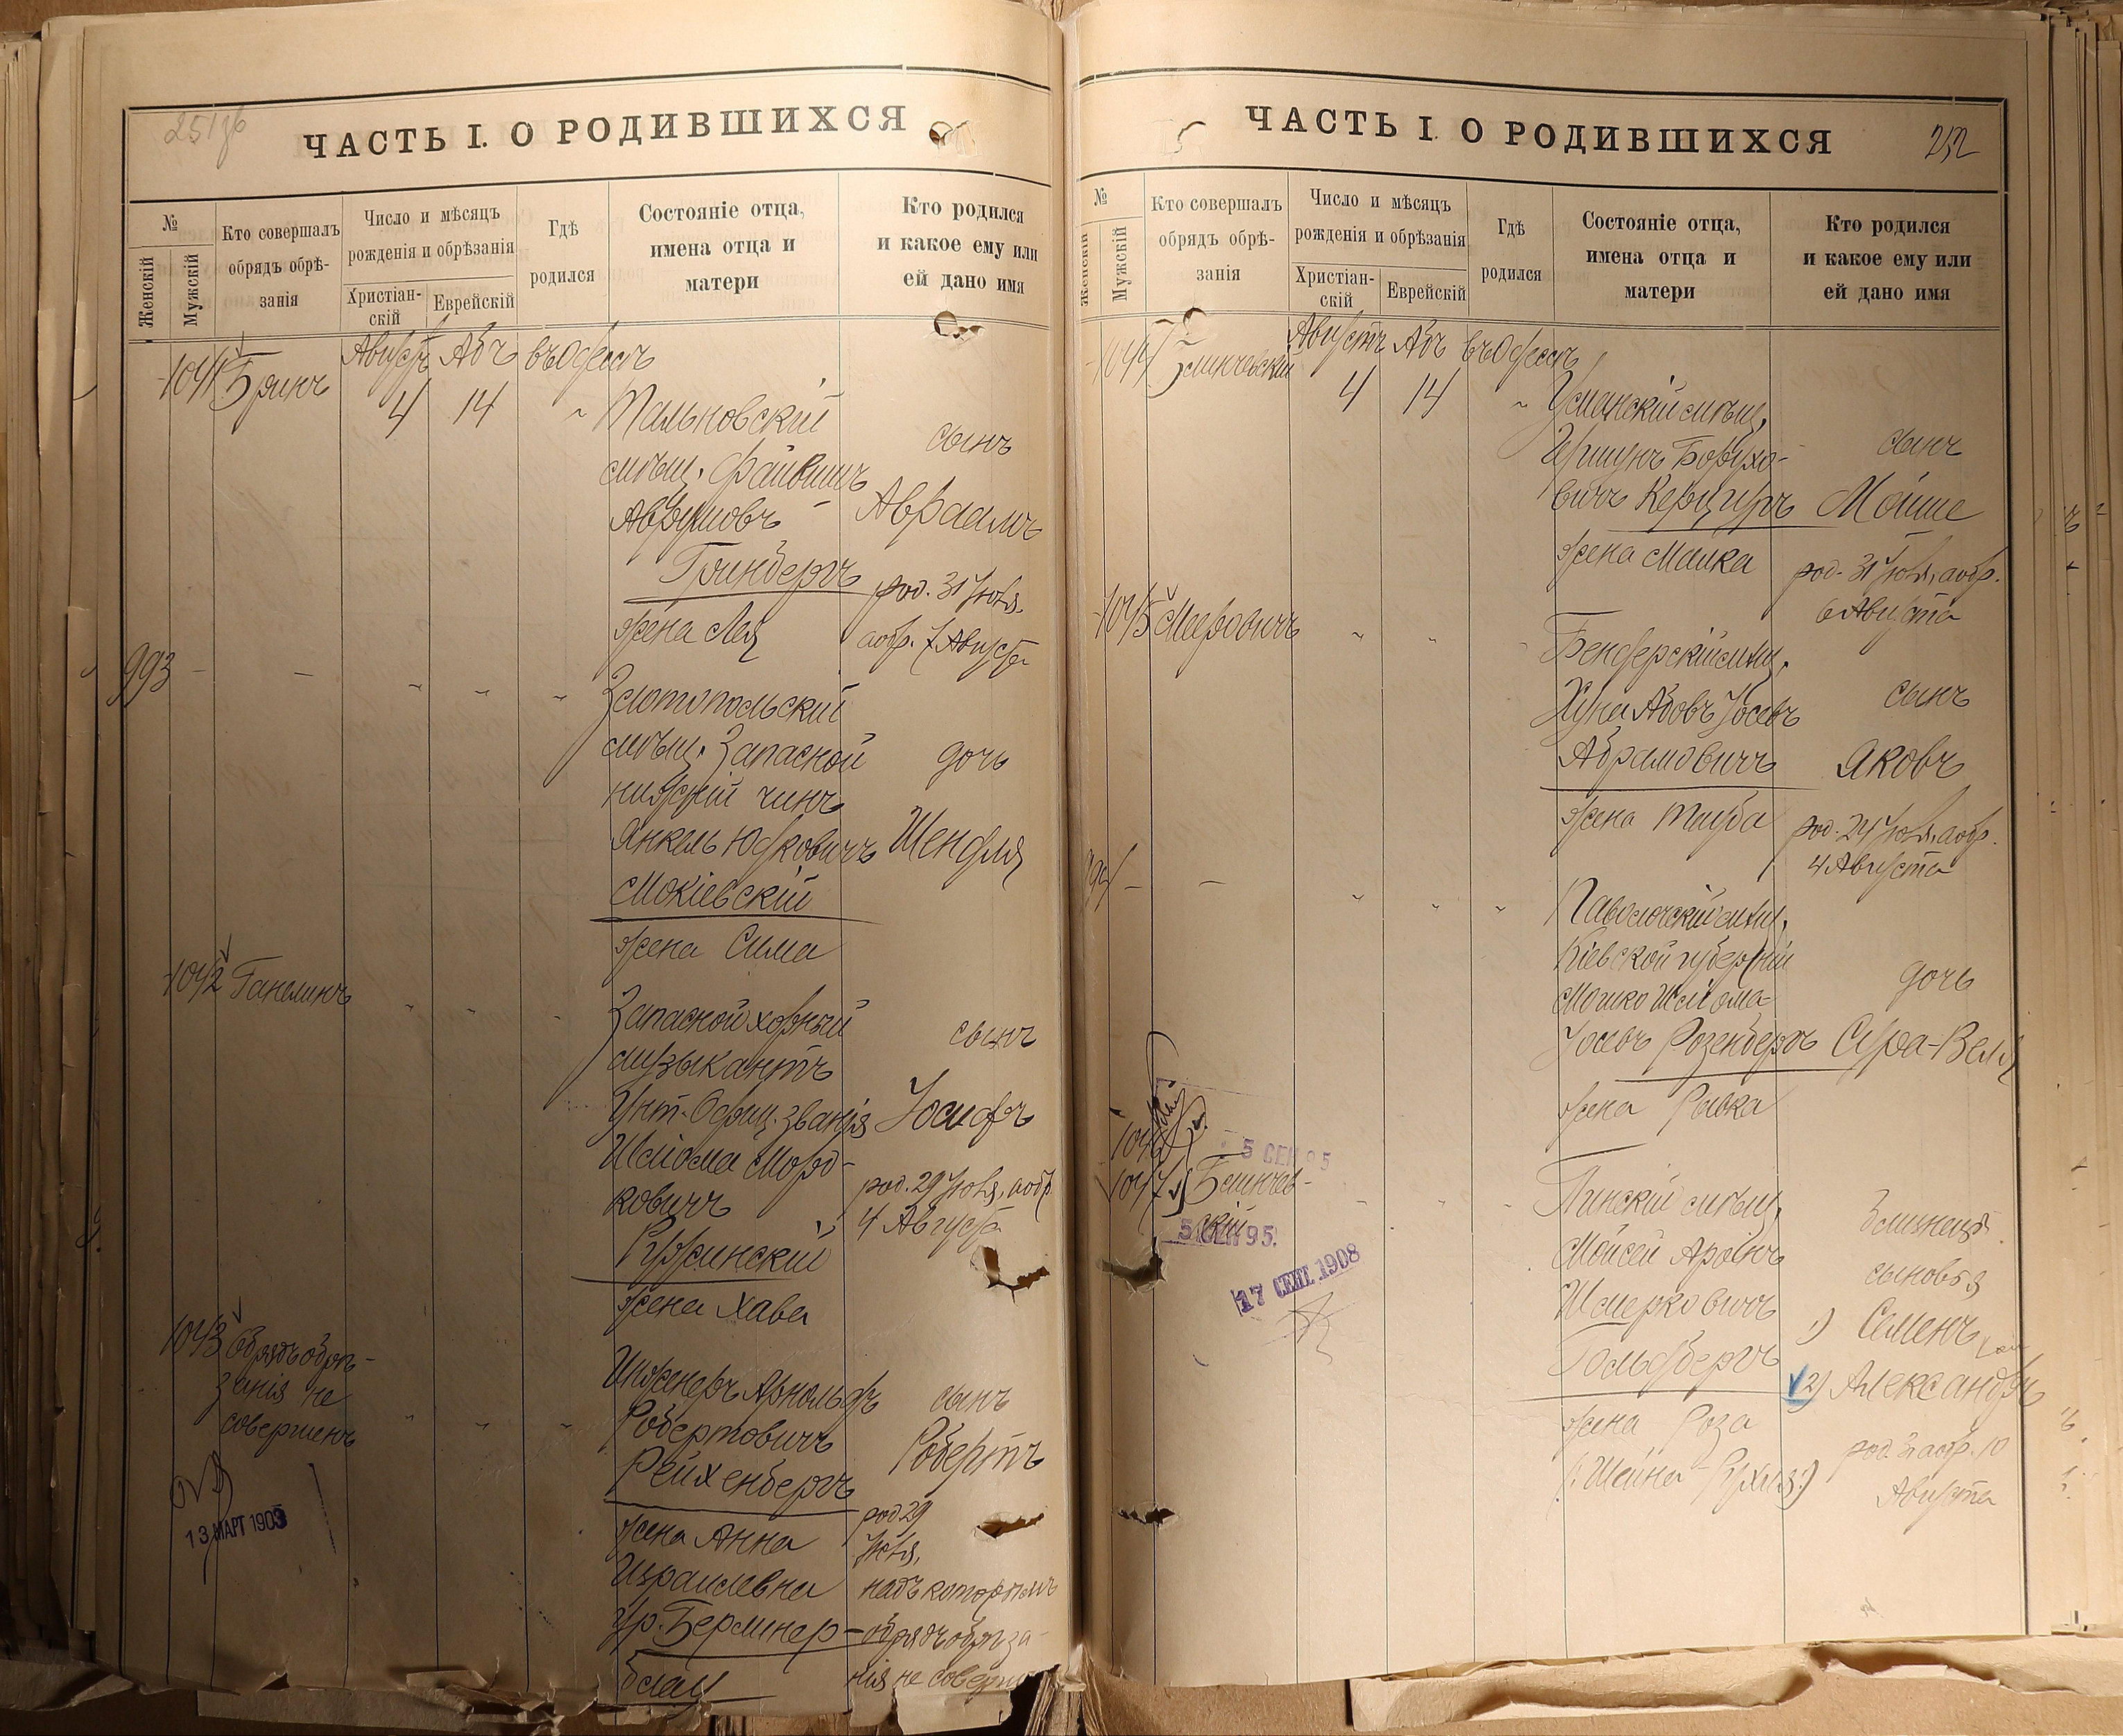 251об
ЧАСТЬ I. О РОДИВШИХСЯ
№
Женскій
Мужскій
Кто совершалъ
обрядъ обрѣ-
занія
Число и мѣсяцъ
рожденія и обрѣзанія
Христіан-
скій
Еврейскій
Гдѣ
родился
Состояніе отца,
имена отца и
матери
Кто родился
и какое ему или
ей дано имя
1041 Бринъ
Августъ Абъ въ Одессѣ
4 14
Тальновскій
мѣщ. Файвишъ
Аврумовъ
Гринбергъ
жена Лея
сынъ
Авраамъ
род. 31 Іюля,
а обр. 7 Августа
993
Златопольскій
мѣщ. Запасной
нижній чинъ
Янкель Юдковичъ
Мокіевскій
жена Сима
дочь
Шендля
1042 Ганелинъ
Запасной хорный
музыкантъ
Унт-Офиц. званія
Шлiома Морд-
ковичъ
жена Хава
сынъ
Іосифъ
род. 29 Іюля, а обр.
4 Августа
1043 Обрядъ обрѣ-
занія не
совершенъ
13 МАРТ 1903
Инженеръ Арнольдъ
Робертовичъ
Рейхенбергъ
жена Анна
Израилевна
ур. Берлинер-
блау
сынъ
Робертъ
род 29
Іюля,
надъ которымъ
обрядъ обрѣза-
нія не соверш
ЧАСТЬ I. О РОДИВШИХСЯ
252
№
Женскій
Мужскій
Кто совершалъ
обрядъ обрѣ-
занія
Число и мѣсяцъ
рожденія и обрѣзанія
Христіан-
скій
Еврейскій
Гдѣ
родился
Состояніе отца,
имена отца и
матери
Кто родился
и какое ему или
ей дано имя
1044
Августъ Абъ въ Одессѣ
4 14
Уманскій мѣщ.
Гершунъ Борухо-
вичъ Керцеръ
жена Малка
сынъ
Мойше
род. 31 Іюля, а обр.
6 Августа
1045 Мееровичъ
Бендерскій мѣщ.
Хуна Абовъ Іосевъ
Абрамовичъ
жена Тауба
сынъ
Яковъ
род. 24 Іюля, а обр.
4 Августа
994
Паволочскій мѣщ.
Кіевской губерніи
Мошко Шліома-
Іосевъ Розенбергъ
жена Рывка
дочь
Сура-Бейля
1046
1047 Блинчев-
скій
5 СЕН 95
5 СЕН 95.
17 СЕНТ. 1908
Пинскій мѣщ.
Мойсей Аронъ
Шмерковичъ
Гольдбергъ
жена Роза
(: Шейна-Рухля :)
близнецы
сыновья
1) Семенъ
2) Александръ
род. 3, а обр. 10
Августа